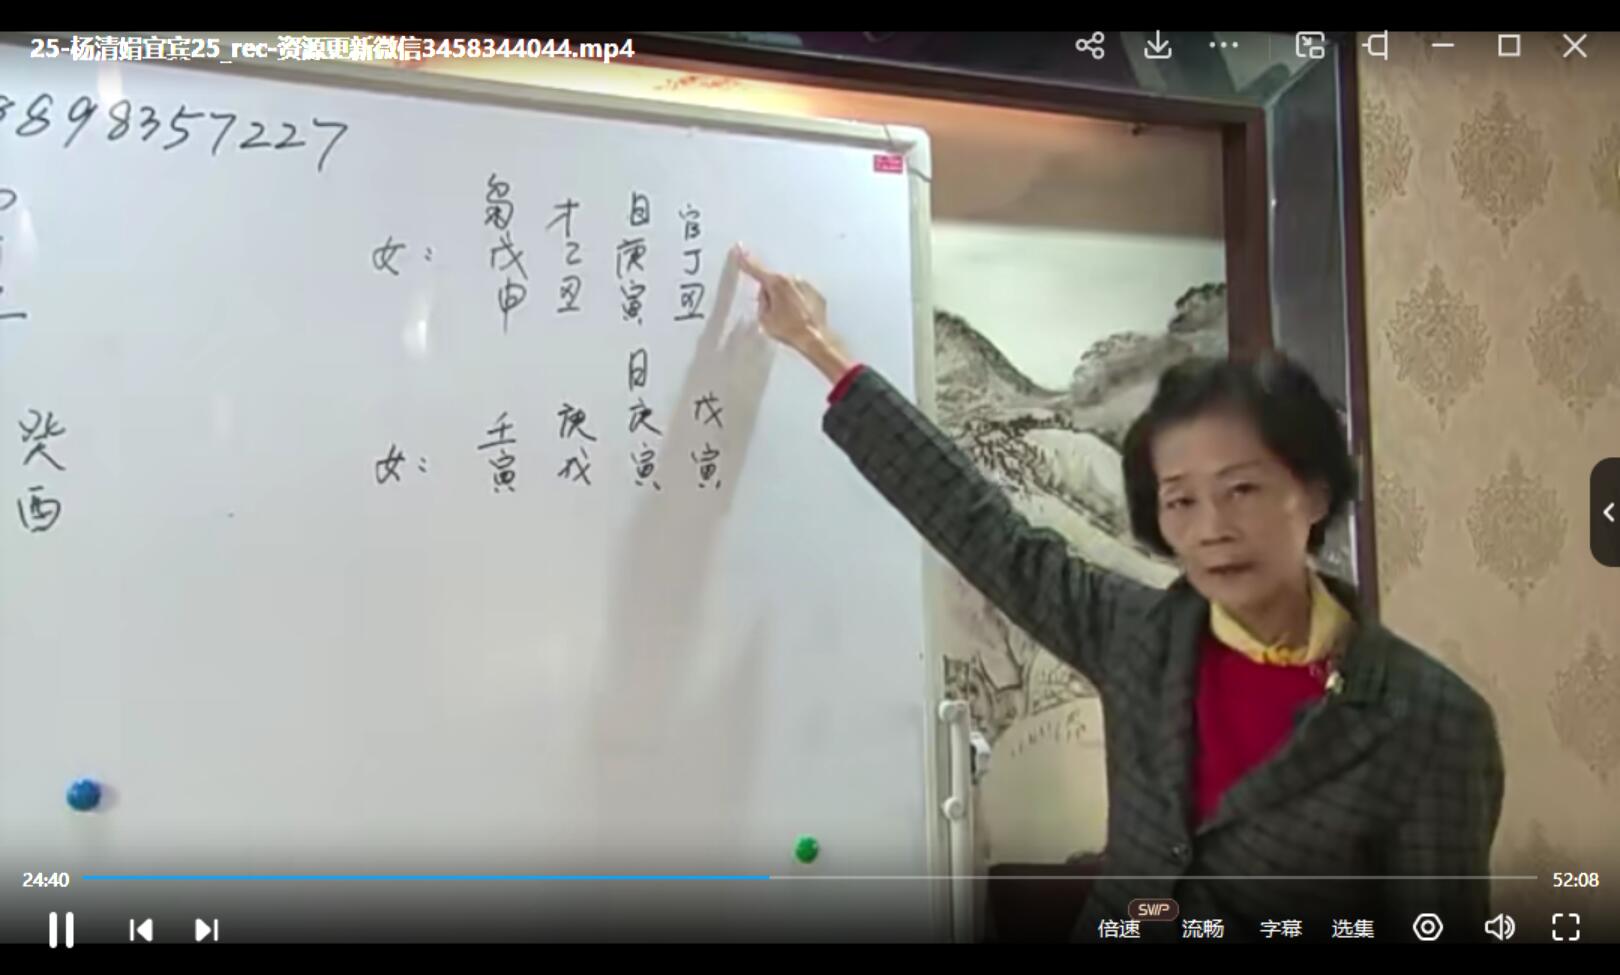 25-杨清娟宜宾25_rec-资源更新微信3458344044.mp4
898357227
才 日 官
女： 戊 乙 庚 丁
申 丑 寅 丑
日
壬 庚 庚 戊
女： 寅 戌 寅 寅
癸
酉
24:40
52:08
SVIP
倍速 流畅 字幕 选集